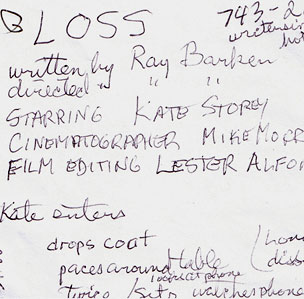 GLOSS 743-2
written by Ray Barker
directed " " "
STARRING KATE STOREY
CINEMATOGRAPHER MIKE MORR
FILM EDITING LESTER ALFO
Kate enters
drops coat
paces around table
looks at phone
twice / sits watches phone